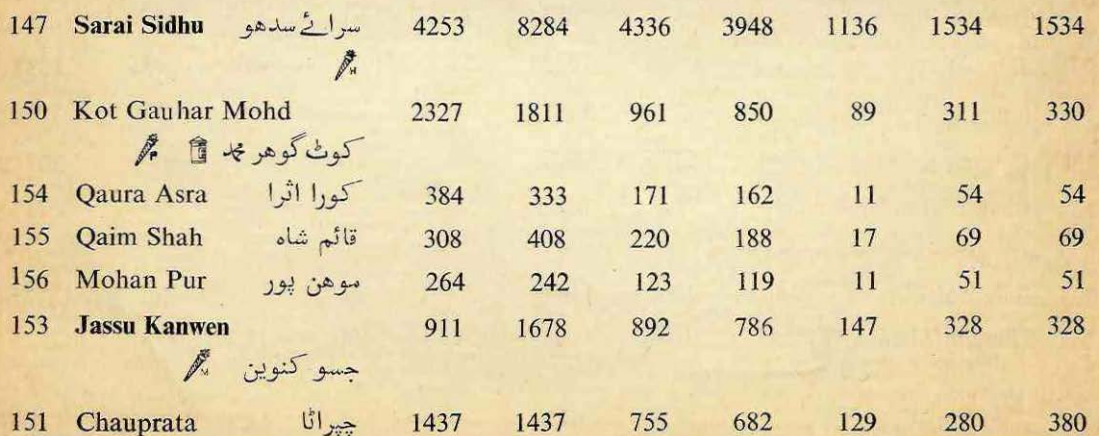 147 Sarai Sidhu سرائے سدھو 4253 8284 4336 3948 1136 1534 1534
H
150 Kot Gauhar Mohd 2327 1811 961 850 89 311 330
کوٹ گوھر محمد P
154 Qaura Asra کورا اثرا 384 333 171 162 11 54 54
155 Qaim Shah قائم شاہ 308 408 220 188 17 69 69
156 Mohan Pur موھن پور 264 242 123 119 11 51 51
153 Jassu Kanwen 911 1678 892 786 147 328 328
جسو کنوین M
151 Chauprata چپراٹا 1437 1437 755 682 129 280 380